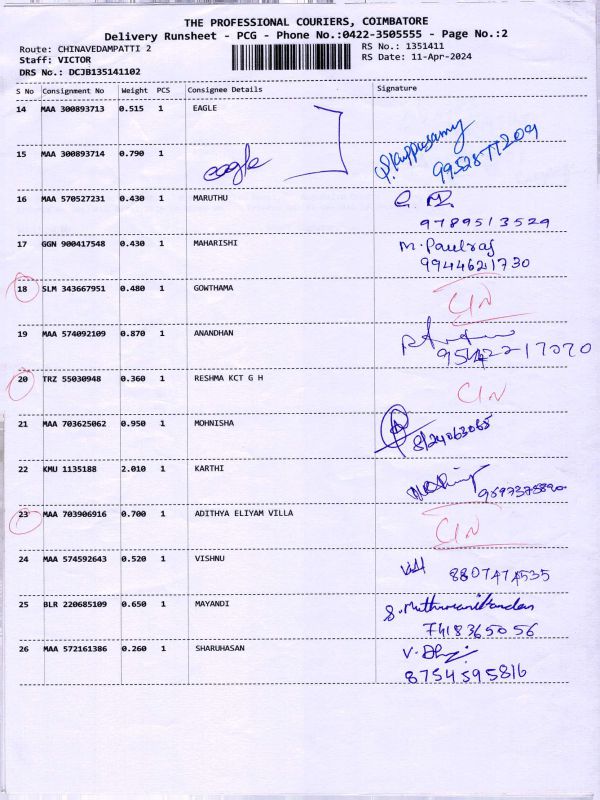 THE PROFESSIONAL COURIERS, COIMBATORE
Delivery Runsheet - PCG - Phone No.:0422-3505555 - Page No.:2
Route: CHINAVEDAMPATTI 2 RS No.: 1351411
Staff: VICTOR RS Date: 11-Apr-2024
DRS No.: DCJB135141102
S No Consignment No Weight PCS Consignee Details Signature
14 MAA 300893713 0.515 1 EAGLE
15 MAA 300893714 0.790 1 eagle 9952877209
16 MAA 570527231 0.430 1 MARUTHU
9789513529
17 GGN 900417548 0.430 1 MAHARISHI M. Paulraj
9944621730
18 SLM 343667951 0.480 1 GOWTHAMA CIN
19 MAA 574092109 0.870 1 ANANDHAN
20 TRZ 55030948 0.360 1 RESHMA KCT G H CIN
21 MAA 703625062 0.950 1 MOHNISHA
22 KMU 1135188 2.010 1 KARTHI
23 MAA 703906916 0.700 1 ADITHYA ELIYAM VILLA CIN
24 MAA 574592643 0.520 1 VISHNU
25 BLR 220685109 0.650 1 MAYANDI
7418365056
26 MAA 572161386 0.260 1 SHARUHASAN
8754595816